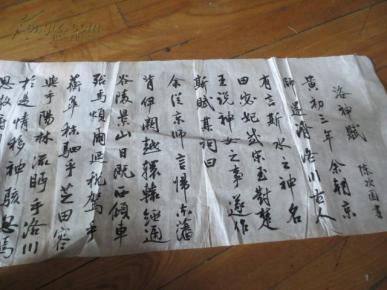 洛神賦
陳次園書
黄初三年余朝京
師還濟洛川古人
有言斯水之神名
曰宓妃感宋玉對楚
王說神女之事遂作
斯賦其詞曰
余從京師言歸東藩
背伊闕越轘轅經通
谷陵景山日既西傾車
殆馬煩爾迺税駕乎
蘅皋秣駟乎芝田容
與乎陽林流眄乎洛川
於是情移神駭忽焉
思散